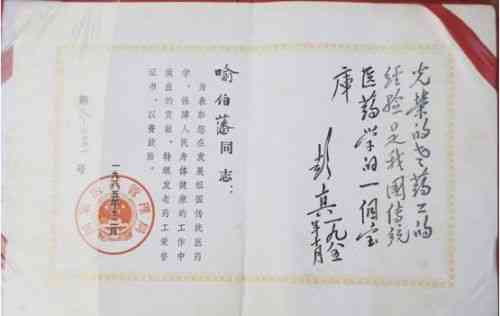 光荣的老药工的
经验是我国传统
医药学的一個宝
库
彭真一九八五
年十月
喻伯藩同志：
为表彰您在发展祖国传统医药
学，保障人民身体健康的工作中
做出的贡献，特颁发老药工荣誉
证书，以资鼓励。
国家医药管理局
一九八五年十二月
第
号